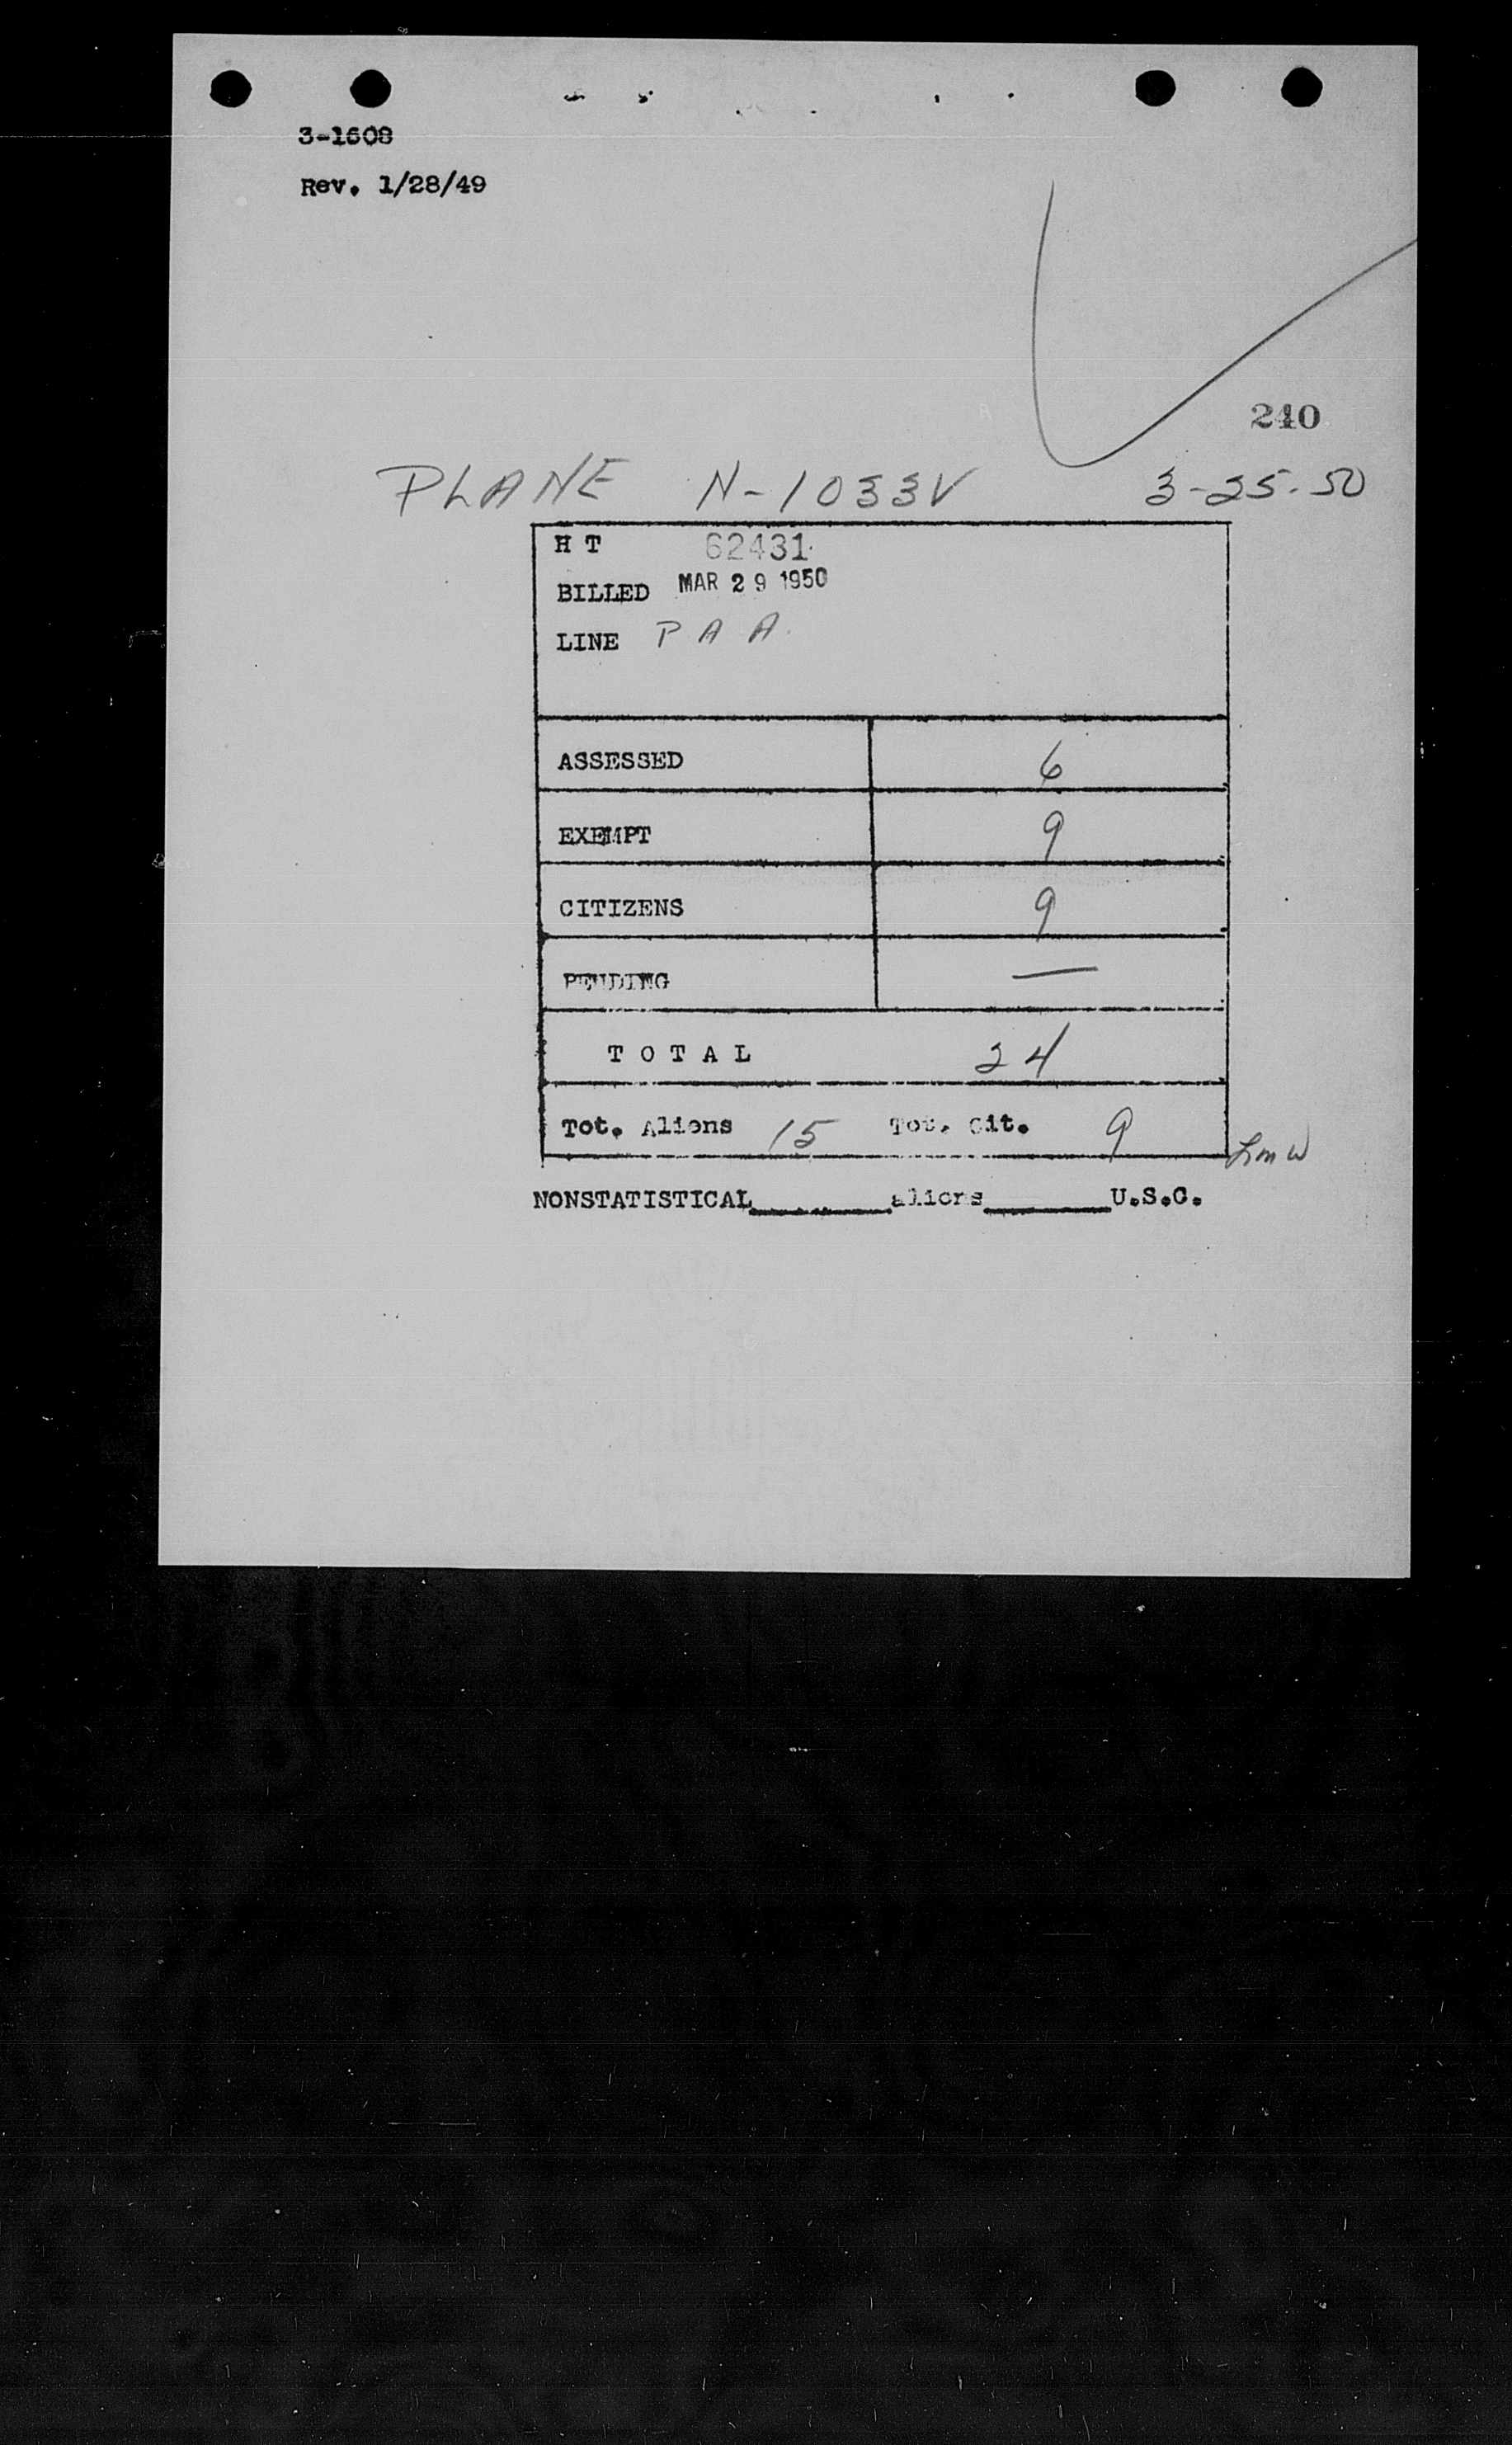 3-1608
Rev. 1/28/49
240
PLANE N-1033V 3-25-50
H T 62431
BILLED MAR 29 1950
LINE P A A
ASSESSED 6
EXEMPT 9
CITIZENS 9
PENDING —
T O T A L 24
Tot. Aliens 15 Tot. Cit. 9
NONSTATISTICAL________aliens________U.S.C.